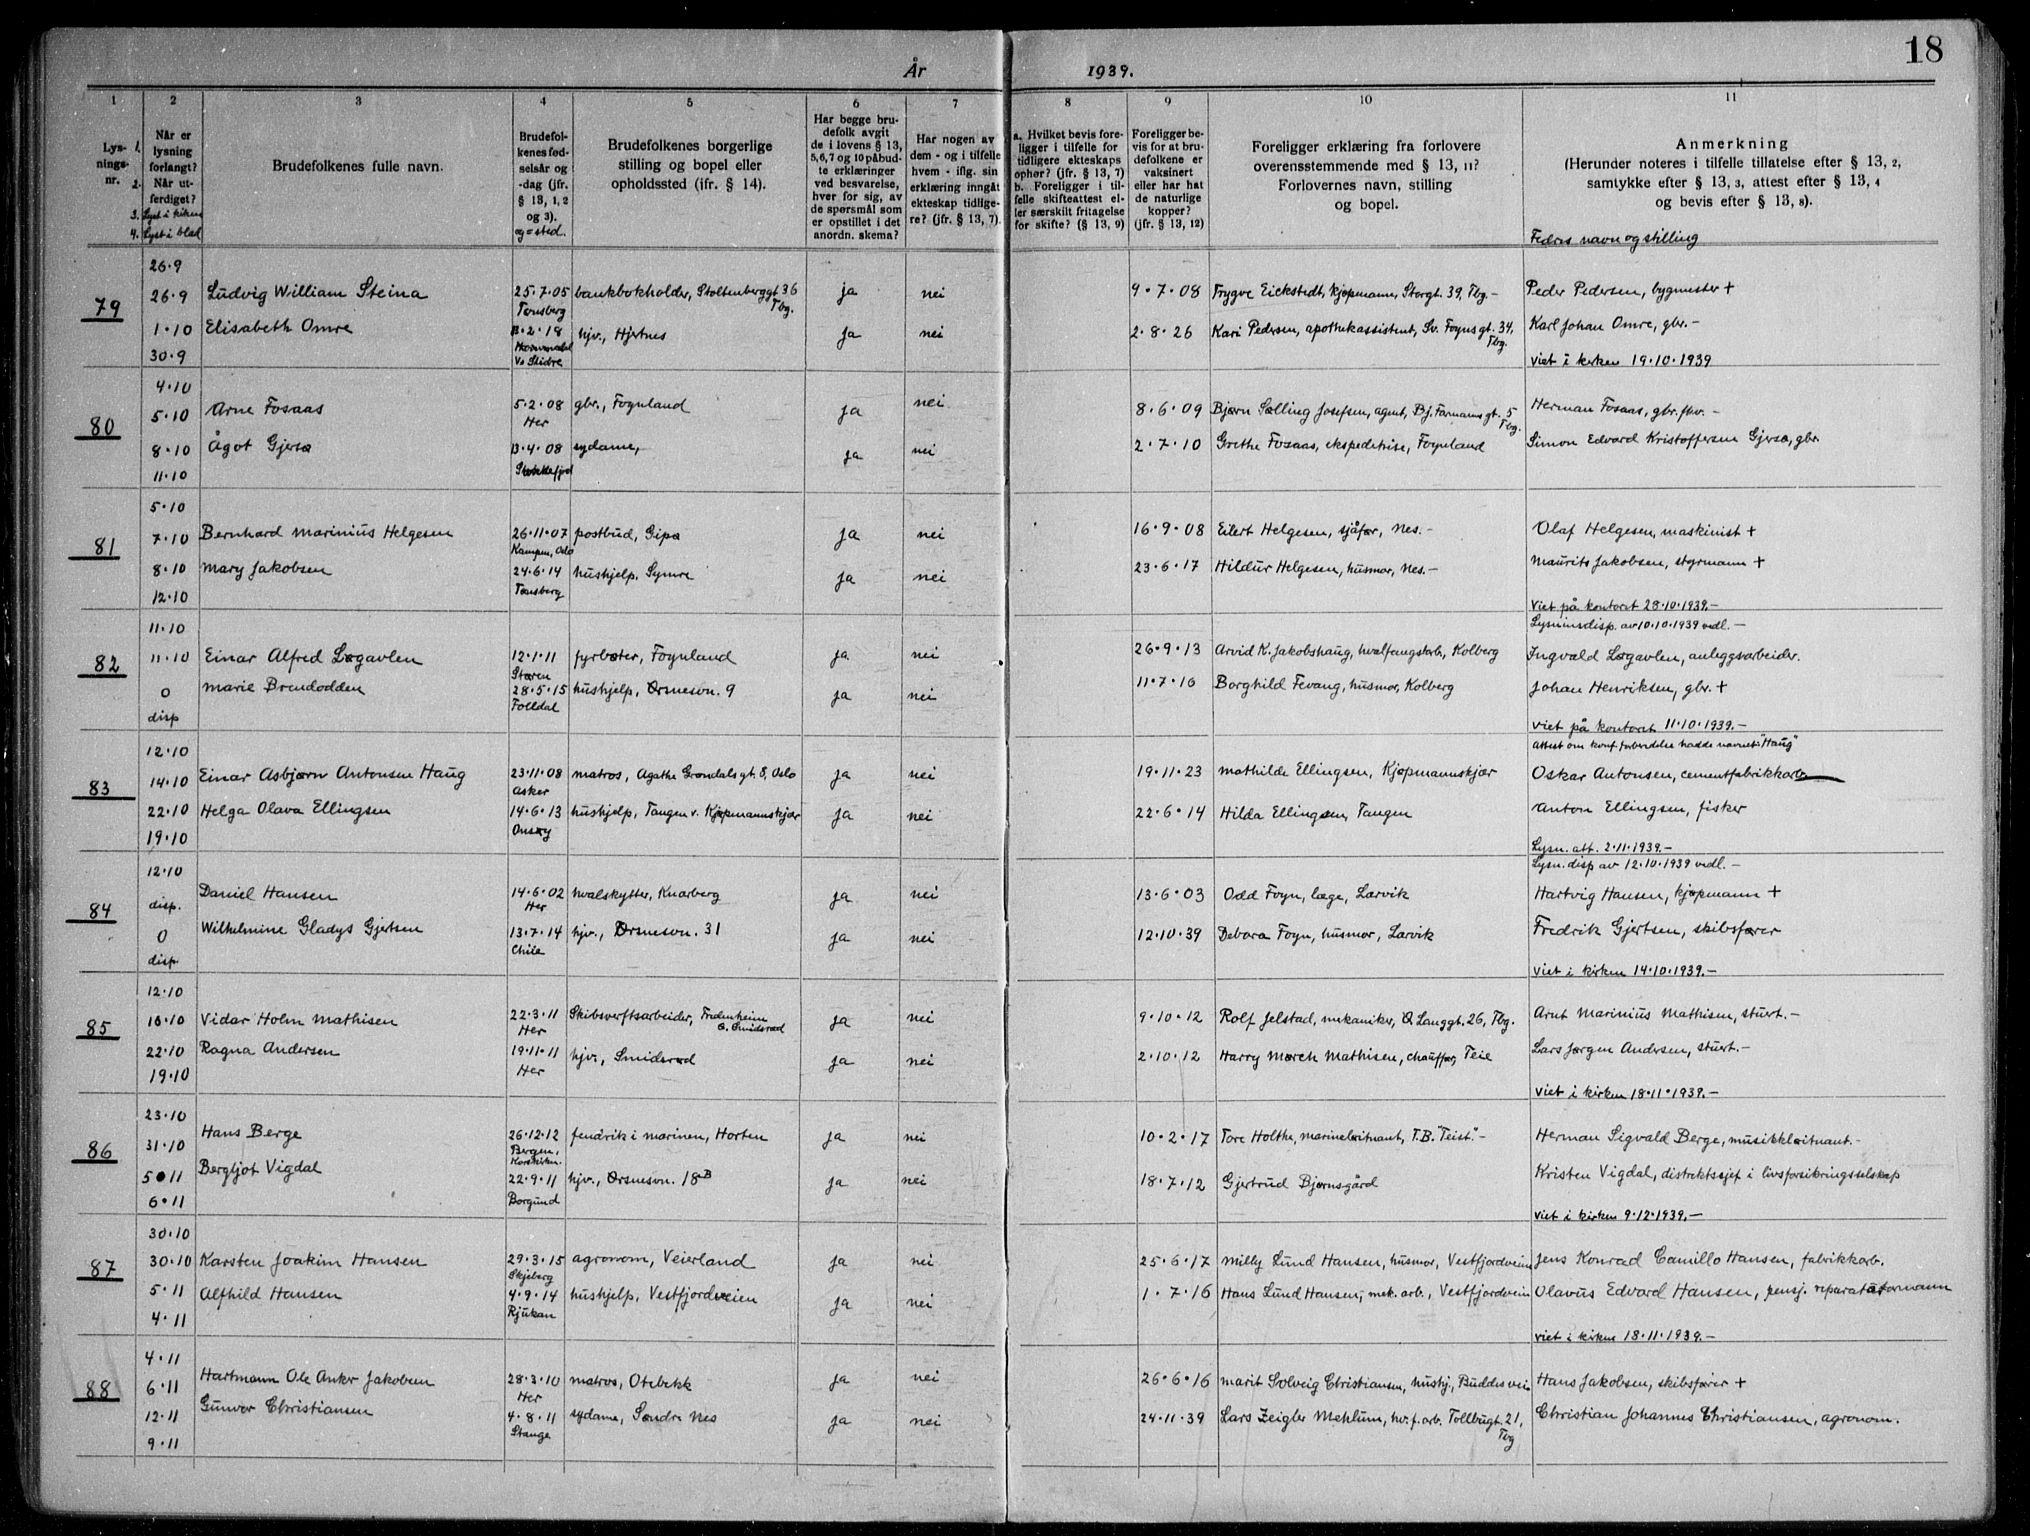 18
År 1939.
1 2 3 4 5 6 7 8 9 10 11
Lysningsnr.
1. Når er lysning forlangt?
2. Når utferdiget?
3. Lyst i kirken
4. Lyst i blad
Brudefolkenes fulle navn.
Brudefolkenes fødselsår og -dag (jfr. § 13, 1, 2 og 3). og = sted.
Brudefolkenes borgerlige stilling og bopel eller opholdssted (jfr. § 14).
Har begge brudefolk avgit de i lovens § 13, 5, 6, 7 og 10 påbudte erklæringer ved besvarelse, hver for sig, av de spørsmål som er opstillet i det anordn. skema?
Har nogen av dem - og i tilfelle hvem - iflg. sin erklæring inngått ekteskap tidligere? (jfr. § 13, 7).
a. Hvilket bevis foreligger i tilfelle for tidligere ekteskaps ophør? (jfr. § 13, 7)
b. Foreligger i tilfelle skifteattest eller særskilt fritagelse for skifte? (§ 13, 9)
Foreligger bevis for at brudefolkene er vaksinert eller har hat de naturlige kopper? (jfr. § 13, 12)
Foreligger erklæring fra forlovere overensstemmende med § 13, 11? Forlovernes navn, stilling og bopel.
Anmerkning
(Herunder noteres i tilfelle tillatelse efter § 13, 2, samtykke efter § 13, 3, attest efter § 13, 4 og bevis efter § 13, 8).
Fedres navn og stilling
26.9
79 26.9 Ludvig William Steina 25.7.05 Tønsberg bankbokholder, Stoltenberggt. 36 Tbg. ja nei 9.7.08 Trygve Eickstedt, kjøpmann, Storgt. 39, Tbg. - Peder Pedersen, bygmester +
1.10 Elisabeth Omre 13.2.18 V. Slidre hjv., Hjertnes ja nei 2.8.26 Kari Pedersen, apothekassistent, Sv. Foynsgt. 34, Tbg. Karl Johan Omre, gbr. -
30.9 viet i kirken 19.10.1939
4.10
80 5.10 Arne Fosaas 5.2.08 Her gbr., Foynland ja nei 8.6.09 Bjørn Sælling Josefsen, agent, Bj. Farmannsgt. 5 Tbg. Herman Fosaas, gbr. fhv. -
8.10 Ågot Gjersø 13.4.08 sydame, ja nei 2.7.10 Grethe Fosaas, ekspeditrise, Foynland Simon Edvard Kristoffersen Gjersø, gbr.
11.10
5.10
81 7.10 Bernhard Marinius Helgesen 26.11.07 Kampen, Oslo postbud, Gipø ja nei 16.9.08 Eilert Helgesen, sjåfør, Nes. - Olaf Helgesen, maskinist +
8.10 Mary Jakobsen 24.6.14 Tønsberg hushjelp, Symre ja nei 23.6.17 Hildur Helgesen, husmor, Nes. - Maurits Jakobsen, styrmann +
12.10 Viet på kontoret 28.10.1939. -
11.10 Lysninsdisp. av 10.10.1939 vedl. -
82 11.10 Einar Alfred Løgavlen 12.1.11 Støren fyrbøter, Foynland ja nei 26.9.13 Arvid K. Jakobshaug, hvalfangstarb, Kolberg Ingvald Løgavlen, anleggsarbeider.
0 Marie Brendodden 28.5.15 Folldal hushjelp, Ørsnesvn. 9 ja nei 11.7.16 Borghild Fevang, husmor, Kolberg Johan Henriksen, gbr. +
disp viet på kontoret 11.10.1939. -
12.10 attest om konf. forberedelse hadde navnet: "Haug"
83 14.10 Einar Asbjørn Antonsen Haug 23.11.08 Asker matros, Agathe Grøndalsgt. 8, Oslo ja nei 19.11.23 Mathilde Ellingsen, Kjøpmannskjær Oskar Antonsen, cementfabrikkarb.
22.10 Helga Olava Ellingsen 14.6.13 Onsøy hushjelp, Tangen v. Kjøpmannskjær ja nei 22.6.14 Hilda Ellingsen, Tangen Anton Ellingsen, fisker
19.10 Lysn. att. 2.11.1939. -
12.10 Lysn. disp av 12.10.1939 vedl. -
84 disp. Daniel Hansen 14.6.02 Her hvalskytter, Knarberg ja nei 13.6.03 Odd Foyn, læge, Larvik Hartvig Hansen, kjøpmann +
0 Wilhelmine Gladys Gjertsen 13.7.14 Chile hjv., Ørsnesvn. 31 ja nei 12.10.39 Debora Foyn, husmor, Larvik Fredrik Gjertsen, skibsfører
disp viet i kirken 14.10.1939. -
12.10
85 16.10 Vidar Holm Mathisen 22.3.11 Her Skibsverftsarbeider, Fredenheim Ø. Smidsrød ja nei 9.10.12 Rolf Jelstad, mekaniker, Ø. Langgt. 26, Tbg. Arnt Marinius Mathisen, stuert. -
22.10 Ragna Andersen 19.11.11 Her hjv., Smidsrød ja nei 2.10.12 Harry Mørch Mathisen, chauffør, Teie Lars Jørgen Andersen, stuert. -
19.10 viet i kirken 18.11.1939. -
23.10
86 31.10 Hans Berge 26.12.12 Bergen, Korskirken. fendrik i marinen, Horten ja nei 10.2.17 Tore Holthe, marineløitnant, T.B. "Teist". - Herman Sigvald Berge, musikkløitnant. -
5.11 Bergljot Vigdal 22.9.11 Borgund hjv., Ørsnesvn. 18B ja nei 18.7.12 Gjertrud Bjørnsgård Kristen Vigdal, distriktssjef i livsforsikringsselskap
6.11 viet i kirken 9.12.1939. -
30.10
87 30.10 Karsten Joakim Hansen 29.3.15 Skjeberg agronom, Veierland ja nei 25.6.17 Milly Lund Hansen, husmor, Vestfjordveien Jens Konrad Camillo Hansen, fabrikkarb.
5.11 Alfhild Hansen 4.9.14 Rjukan hushjelp, Vestfjordveien ja nei 1.7.16 Hans Lund Hansen, mek. arb., Vestfjordveien Olavus Edvard Hansen, pensj. reparatørformann
4.11 viet i kirken 18.11.1939. -
4.11
88 6.11 Hartmann Ole Anker Jakobsen 28.3.10 Her matros, Otebekk ja nei 26.6.16 Marit Solveig Christiansen, hushj., Buddesvei Hans Jakobsen, skibsfører +
12.11 Gunvor Christiansen 4.8.11 Stange sydame, Søndre Nes ja nei 24.11.39 Lars Zeigler Mehlum, hv.f.arb. Tollbugt. 21, Tbg Christian Johannes Christiansen, agronom.
9.11